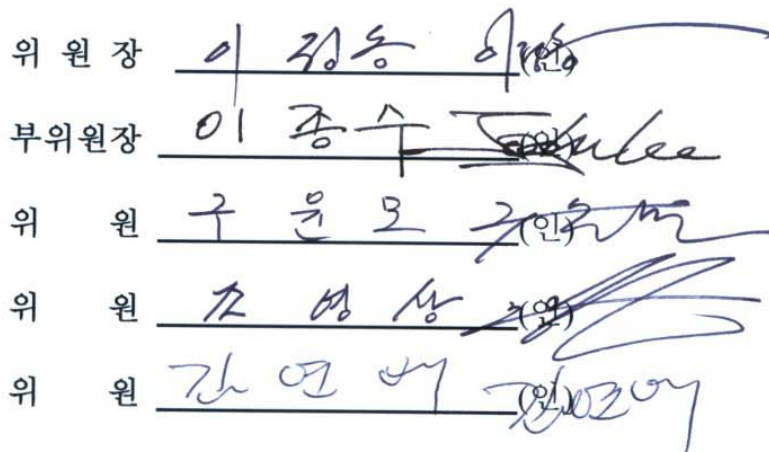 위 원 장 이 정 동 (인)
부위원장 이 종 수 (인)
위 원 구 윤 모 (인)
위 원 조 영 상 (인)
위 원 김 연 배 (인)